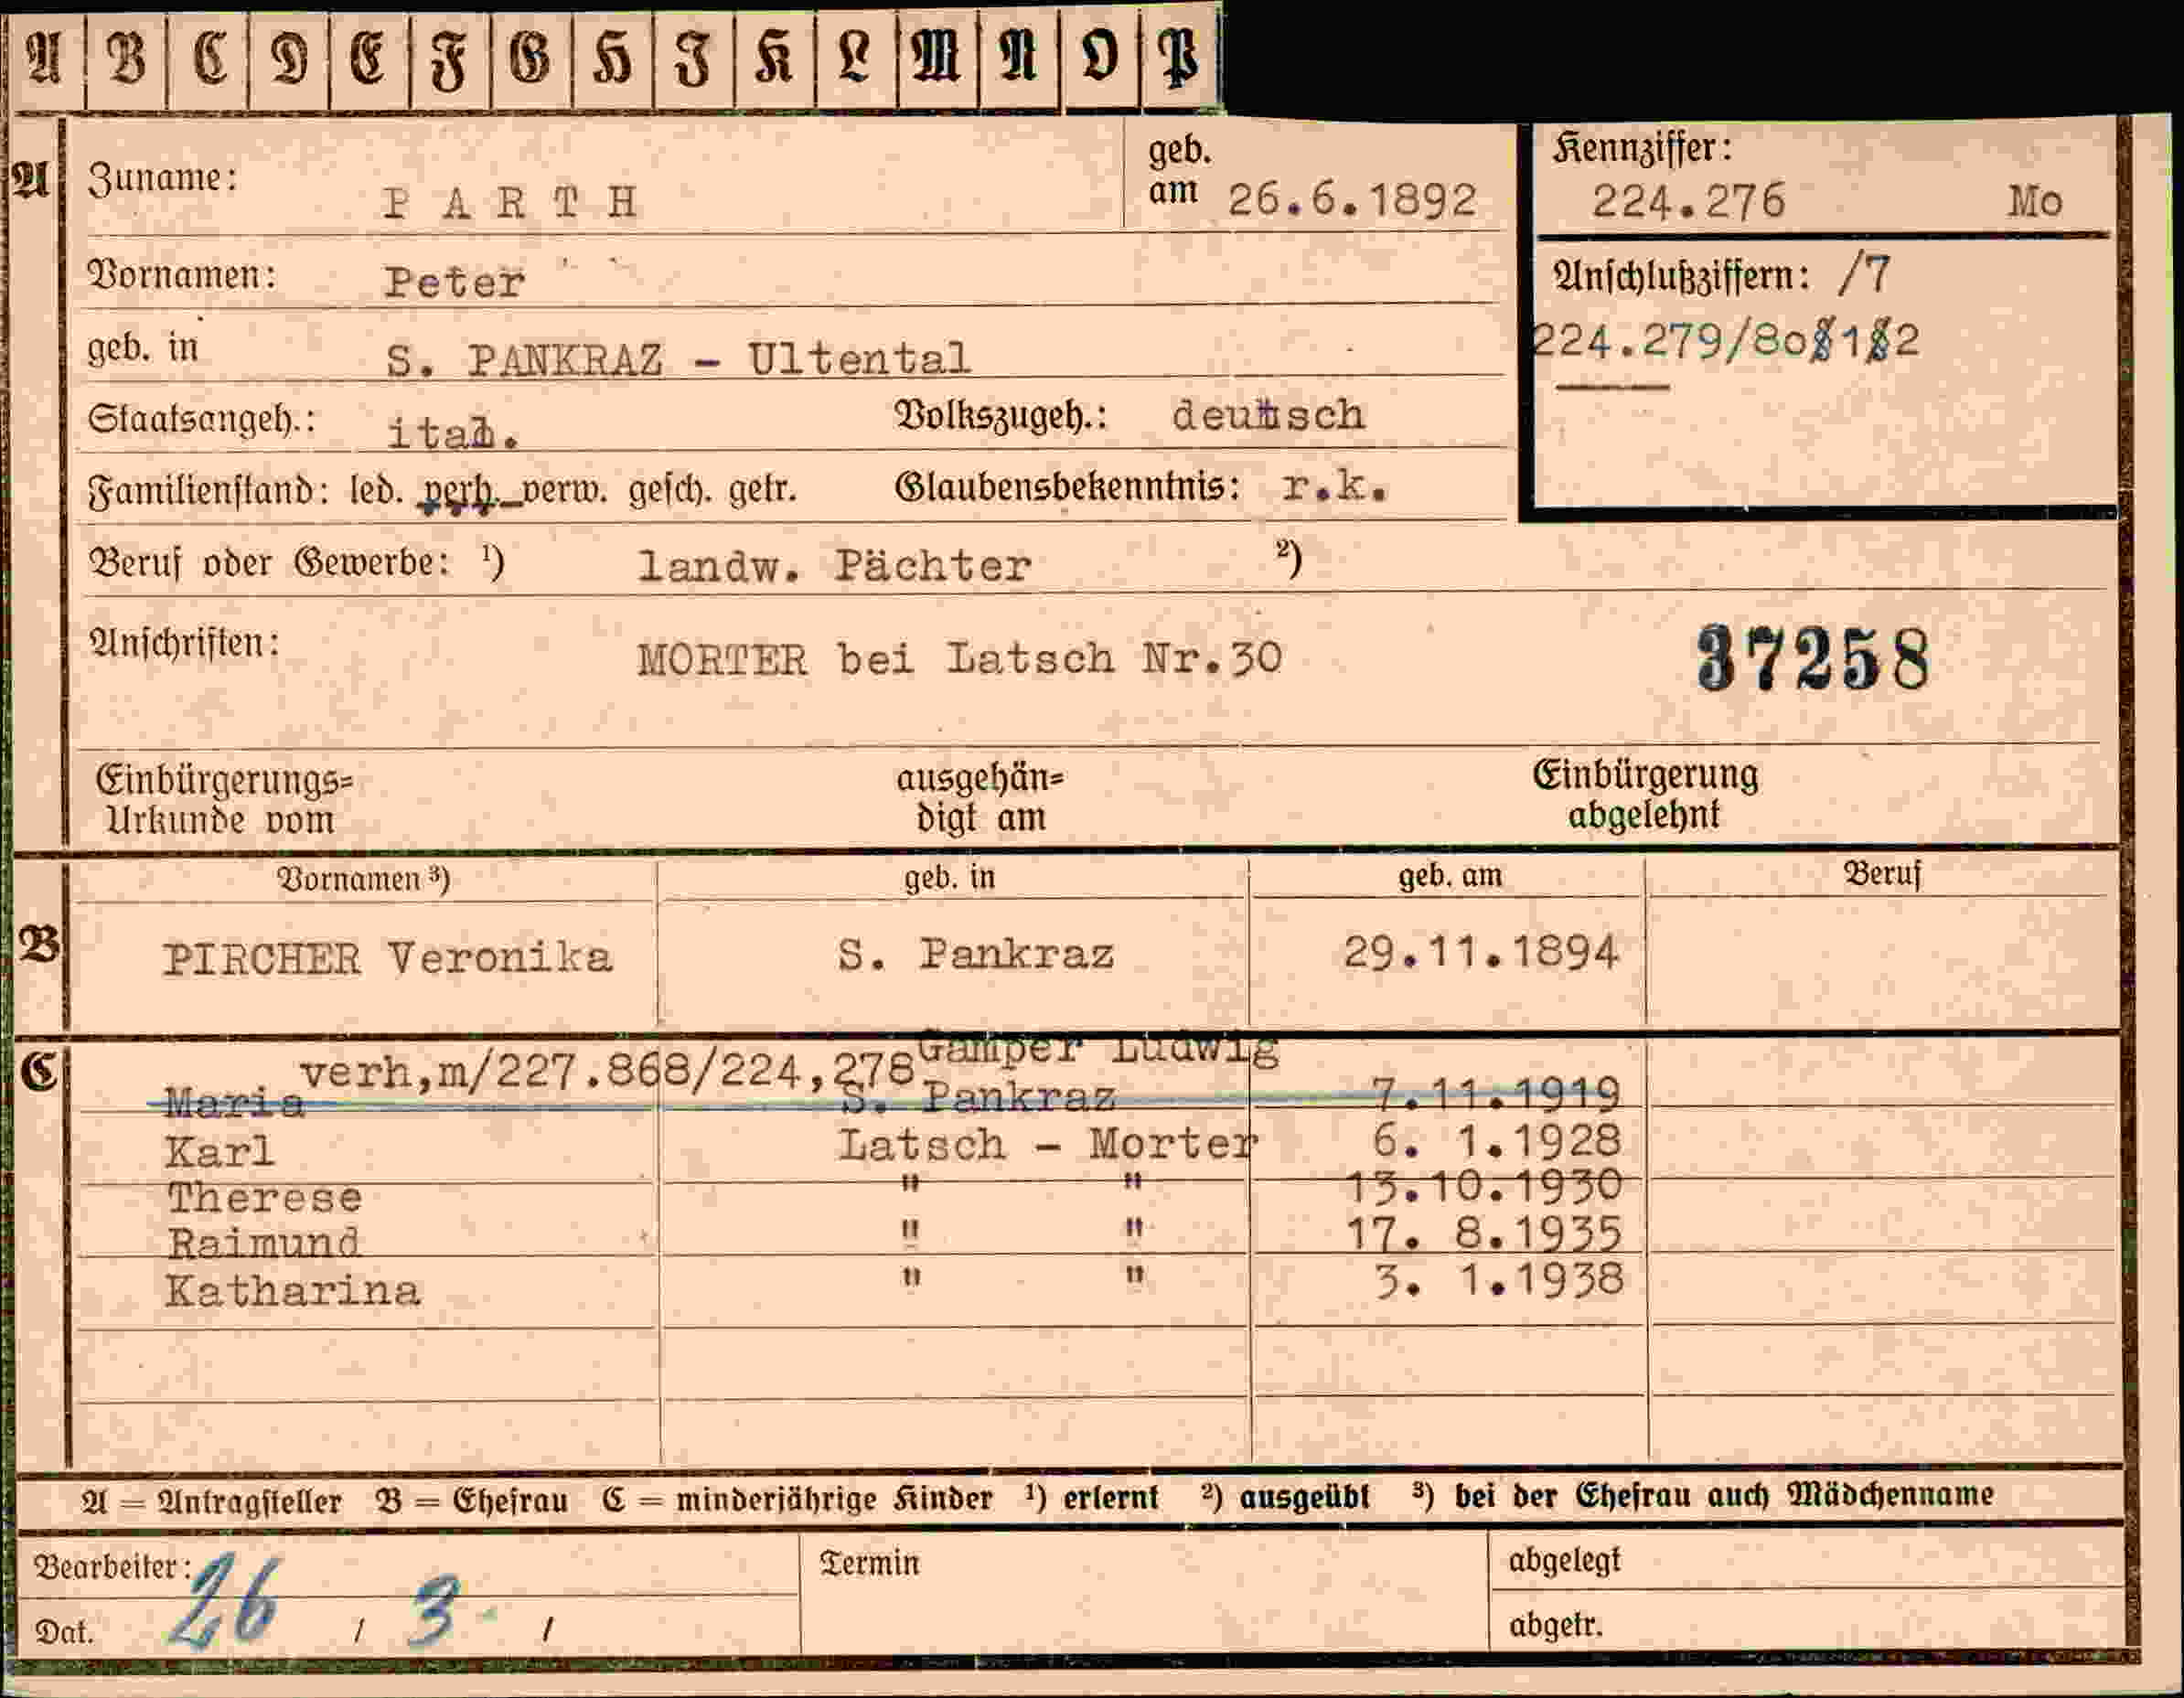 A B C D E F G H I K L M N O P
A Zuname: PARTH geb. am 26.6.1892
Kennziffer: 224.276 Mo
Vornamen: Peter
Anschlußziffern: /7
224.279/80/1/2
geb. in S. PANKRAZ - Ultental
Staatsangeh.: ital. Volkszugeh.: deutsch
Familienstand: led. verh. verw. gesch. getr. Glaubensbekenntnis: r.k.
Beruf oder Gewerbe: ¹) landw. Pächter ²)
Anschriften: MORTER bei Latsch Nr.30 37258
Einbürgerungs= ausgehän= Einbürgerung
Urkunde vom digt am abgelehnt
Vornamen ³) geb. in geb. am Beruf
B PIRCHER Veronika S. Pankraz 29.11.1894
C verh,m/227.868/224,278 Gamper Ludwig
Maria S. Pankraz 7.11.1919
Karl Latsch - Morter 6. 1.1928
Therese " " 13.10.1930
Raimund " " 17. 8.1935
Katharina " " 3. 1.1938
A = Antragsteller B = Ehefrau C = minderjährige Kinder ¹) erlernt ²) ausgeübt ³) bei der Ehefrau auch Mädchenname
Bearbeiter: Termin abgelegt
Dat. 26 / 3 / abgetr.